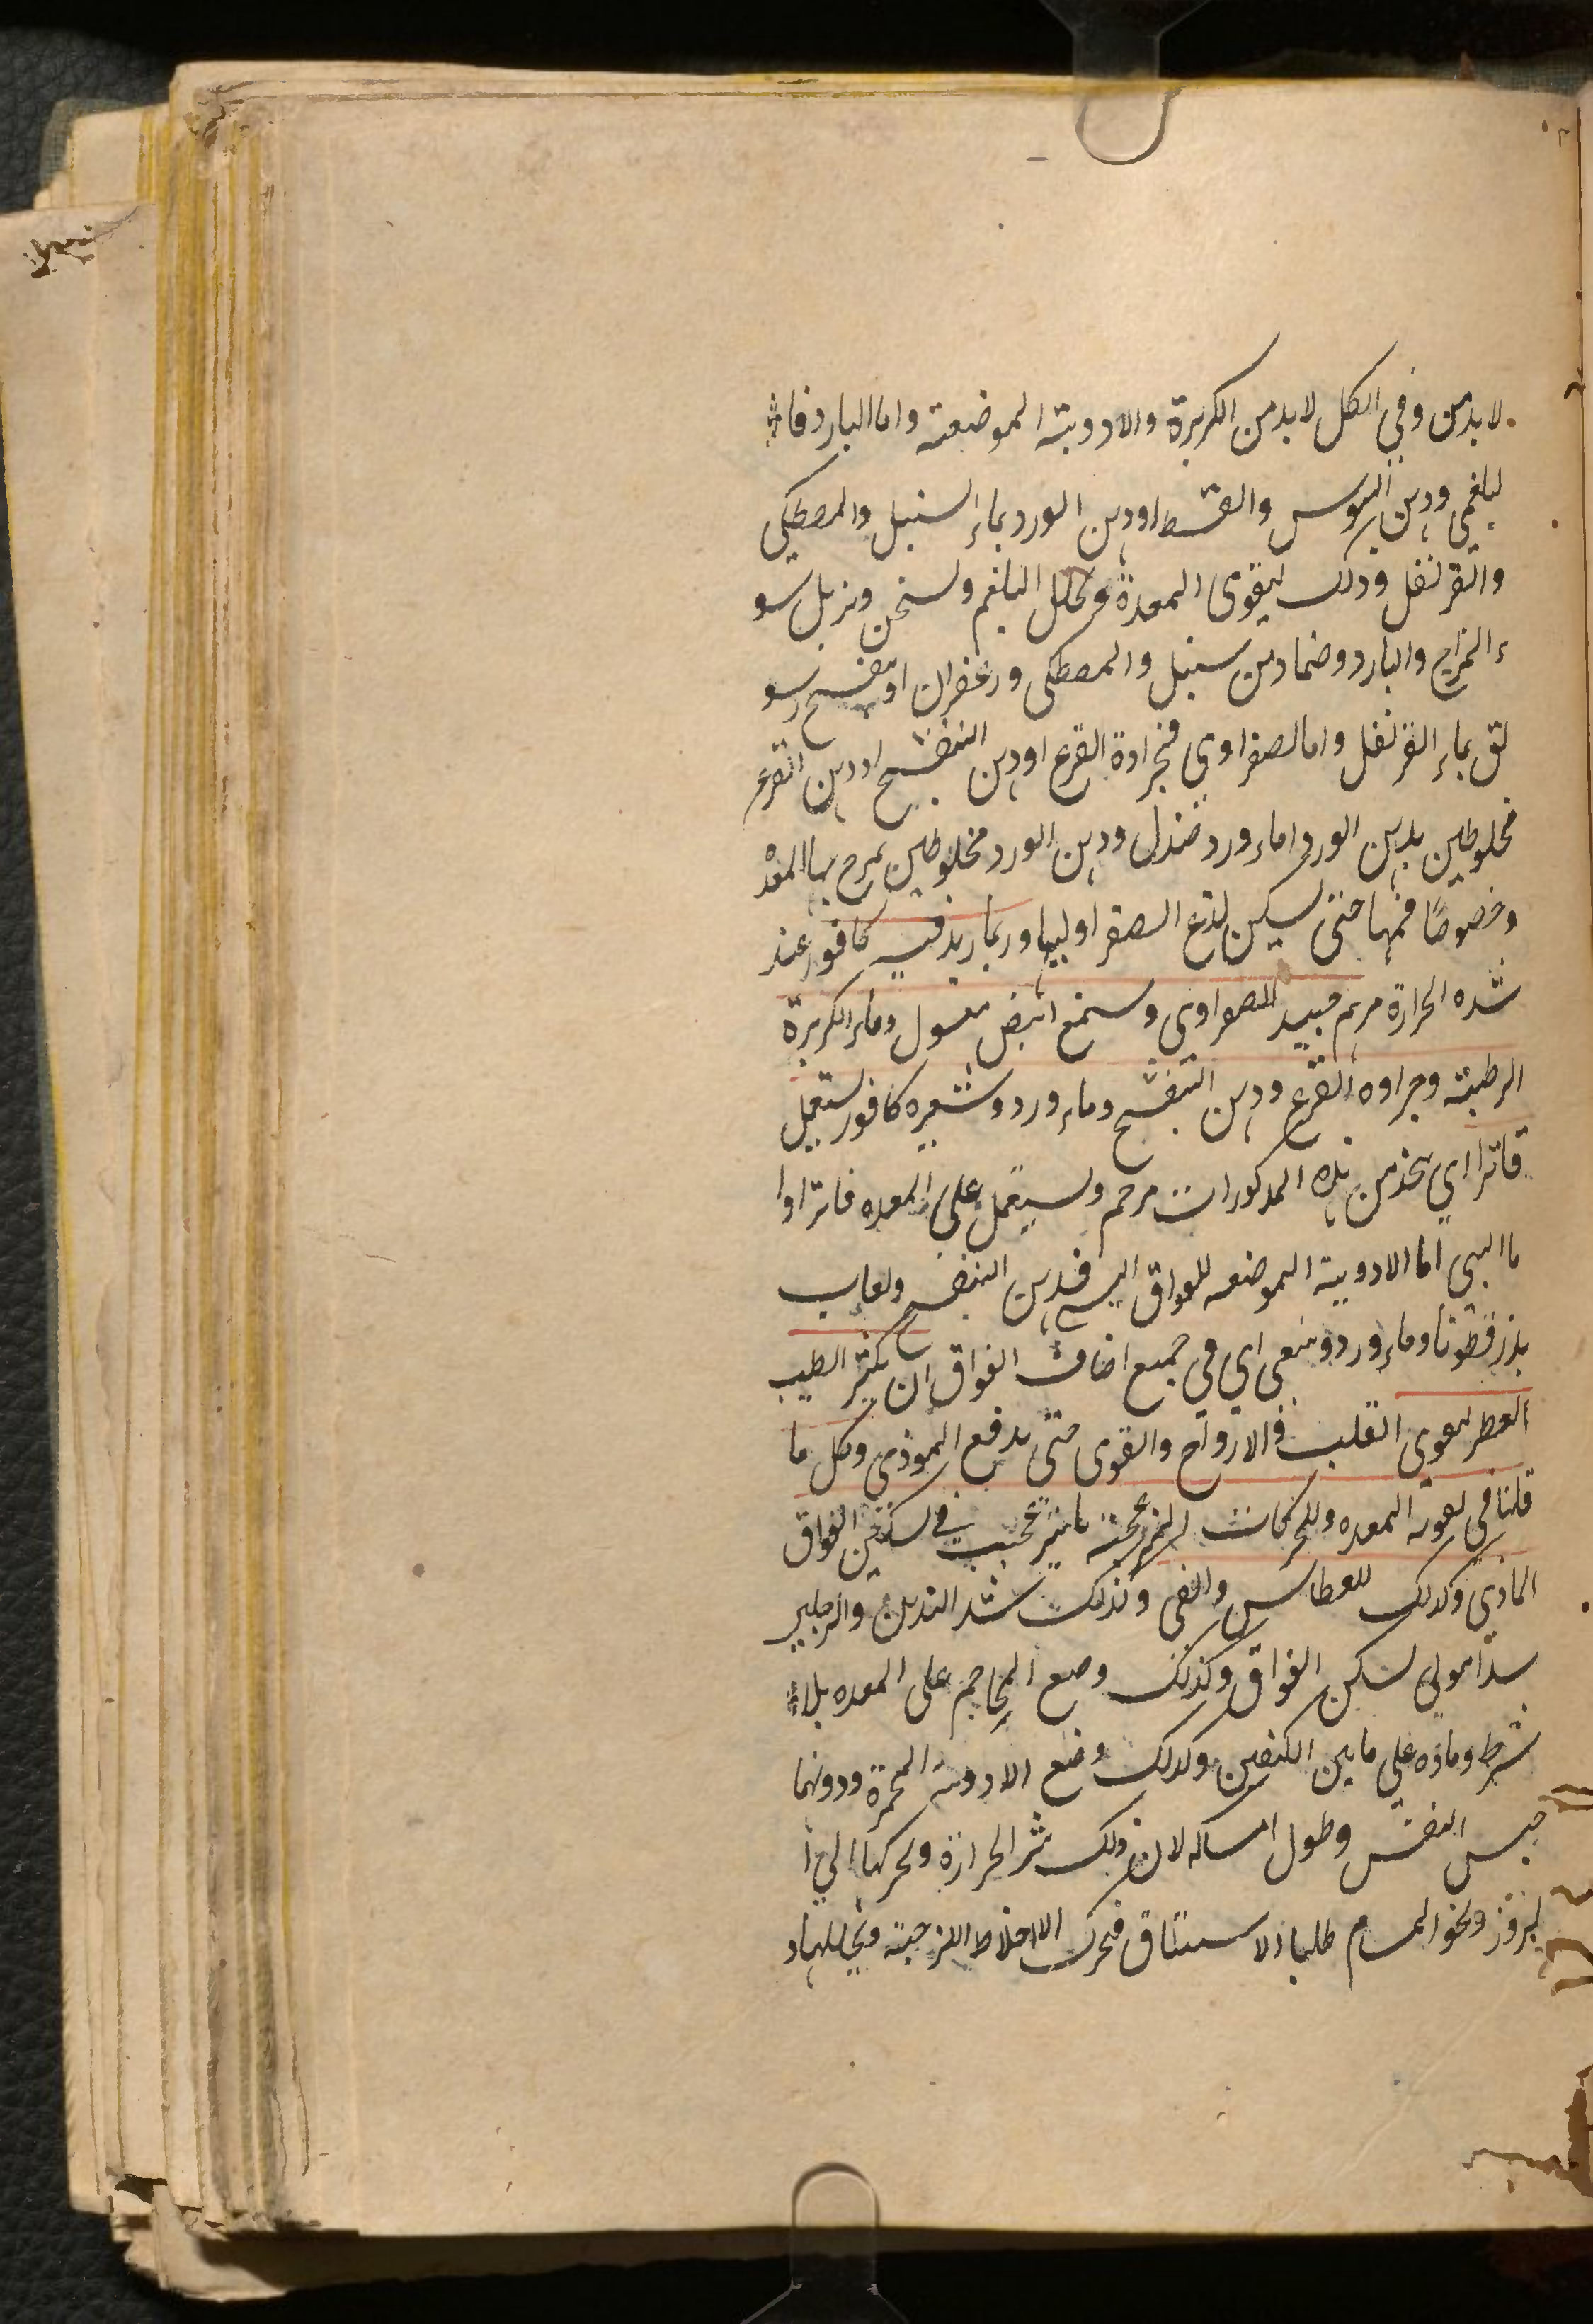 لا بد من وفي الكل لا بد من الكزبرة والادوية الموضعية واما البارد فا
لبلغمي ودهن السوس والقسط اودهن الورد بماء السنبل والمصطكي
والقرنفل وذلك ليقوي المعدة ويحلل البلغم ويسخن ويزيل سو
ء المزاج والبارد وضماد من سنبل والمصطكي وزعفران او بنفسج سو
لق بماء القرنفل واما لصفراوي فجرادة القرع اودهن البنفسج اودهن القرع
مخلوطين بدهن الورد اماء ورد صندل ودهن الورد مخلوطين يمرخ بها المعد
وخصوصًا فمها حتى يسكن لذع الصفرا وربما زيد فيه كافور عند
شده الحرارة مرهم جيد للصفراوي وشمع ابيض مغسول وماء الكزبرة
الرطبة وجراده القرع ودهن البنفسج وماء ورد وشعيره كافور يستعمل
فاترا اي يتخذ من هذه المذكورات مرحم ويستعمل على المعده فاترا وا
ما اليبسي اما الادوية الموضعه للفواق اليبسي فدهن البنفسج ولعاب
بذر قطونا وماء ورد وينبغي اي في جميع اصناف الفواق ان يكثر الطيب
العطر ليقوي القلب والارواح والقوى حتى يدفع الموذي وكل ما
قلنا في تقوية المعده وللحركات المزعجة تاثير عجيب في تسكين الفواق
المادي وكذلك للعطاس والقي وكذلك شد اليدين والرجلين
شدا مولي يسكن الفواق وكذلك وضع المحاجم على المعده بلا
شرط وماده على ما بين الكتفين وكذلك وضع الادوية المحمرة ودونها
حبس النفس وطول امساكه لان ذلك يثير الحرارة ويحركها الي ا
لبروز ونحو المسام طلبا للاستنشاق فيحرك الاخلاط اللزجة ويحللها و